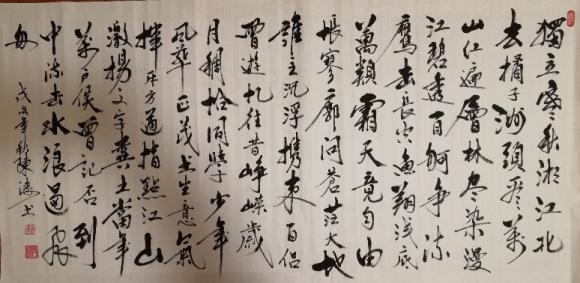 獨立寒秋湘江北
去橘子洲頭看萬
山红遍層林尽染漫
江碧透百舸争流
鹰击長空魚翔浅底
萬類霜天竟自由
悵寥廓问蒼茫大地
誰主沉浮携来百侣
曾遊忆往昔峥嵘歲
月稠恰同學少年
風華正茂书生意氣
揮斥方遒指點江山
激揚文字糞土當年
萬户侯曾记否到
中流击水浪遏飛
舟
戊戌年秋陳书